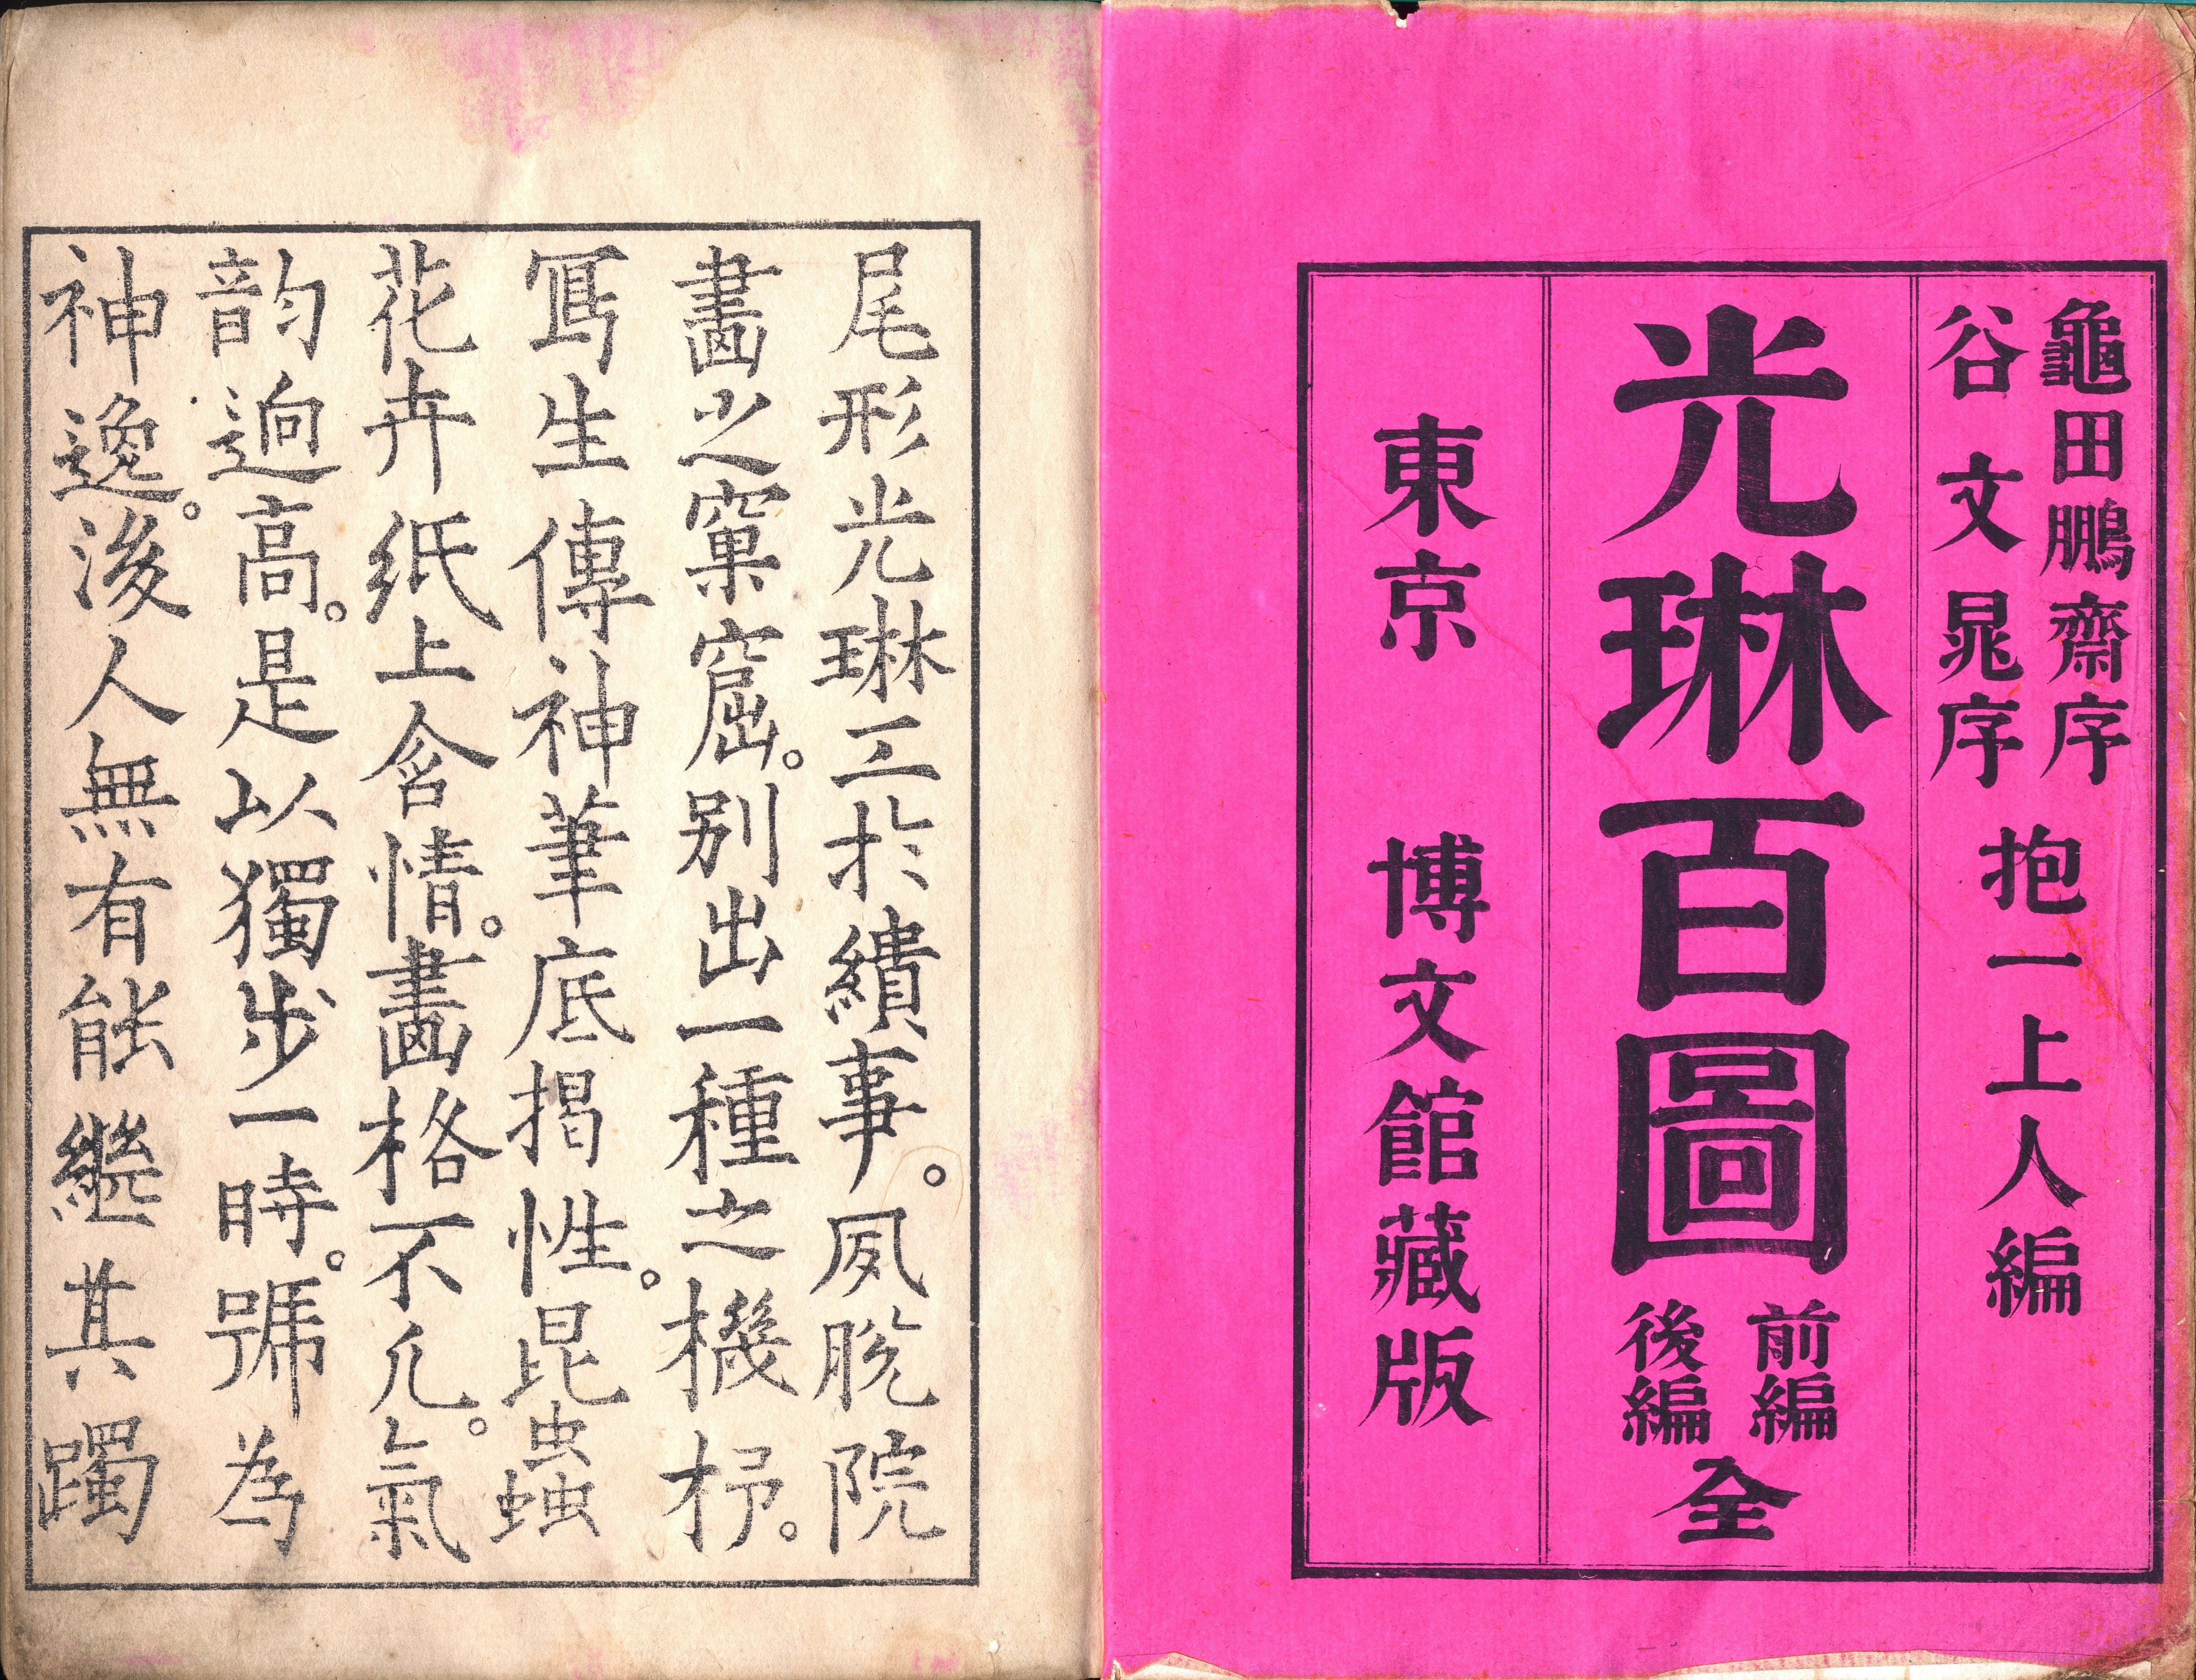 龜田鵬齋序
谷文晁序
抱一上人編
光琳百圖
前編
後編
全
東京 博文館藏版
尾形光琳工於繢事。夙脫院
畫之窠窟。別出一種之機杼。
寫生傳神筆底揭性。昆蟲
花卉紙上含情。畫格不凡。氣
韵迥高。是以獨步一時。號為
神逸。後人無有能繼其躅